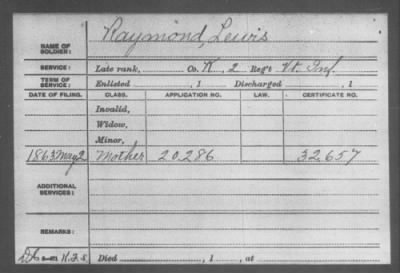 Raymond, Lewis
NAME OF SOLDIER:
SERVICE: Late rank, Co. K, 2 Reg't Vt. Inf.
TERM OF SERVICE: Enlisted , 1 Discharged , 1
DATE OF FILING. CLASS. APPLICATION NO. LAW. CERTIFICATE NO.
Invalid,
Widow,
Minor,
1863 May 2 Mother 20.286 32.657
ADDITIONAL SERVICES:
REMARKS:
Died , 1 , at